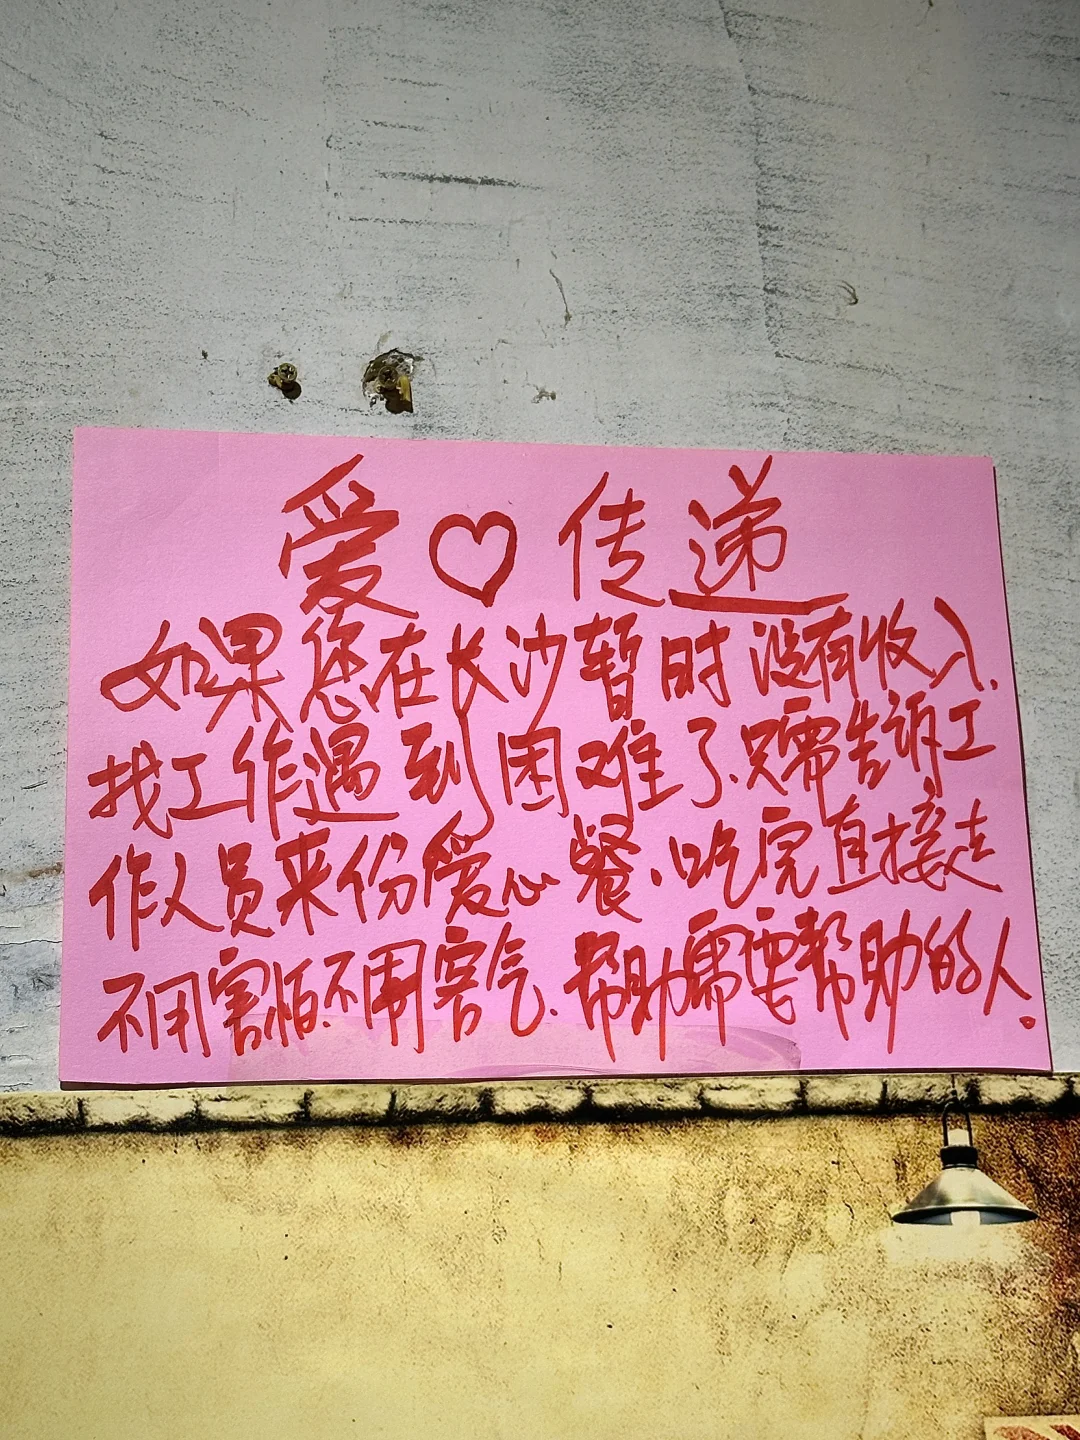 爱♡传递
如果您在长沙暂时没有收入.
找工作遇到困难了.只需告诉工
作人员来份爱心餐.吃完直接走
不用害怕.不用客气.帮助需要帮助的人。